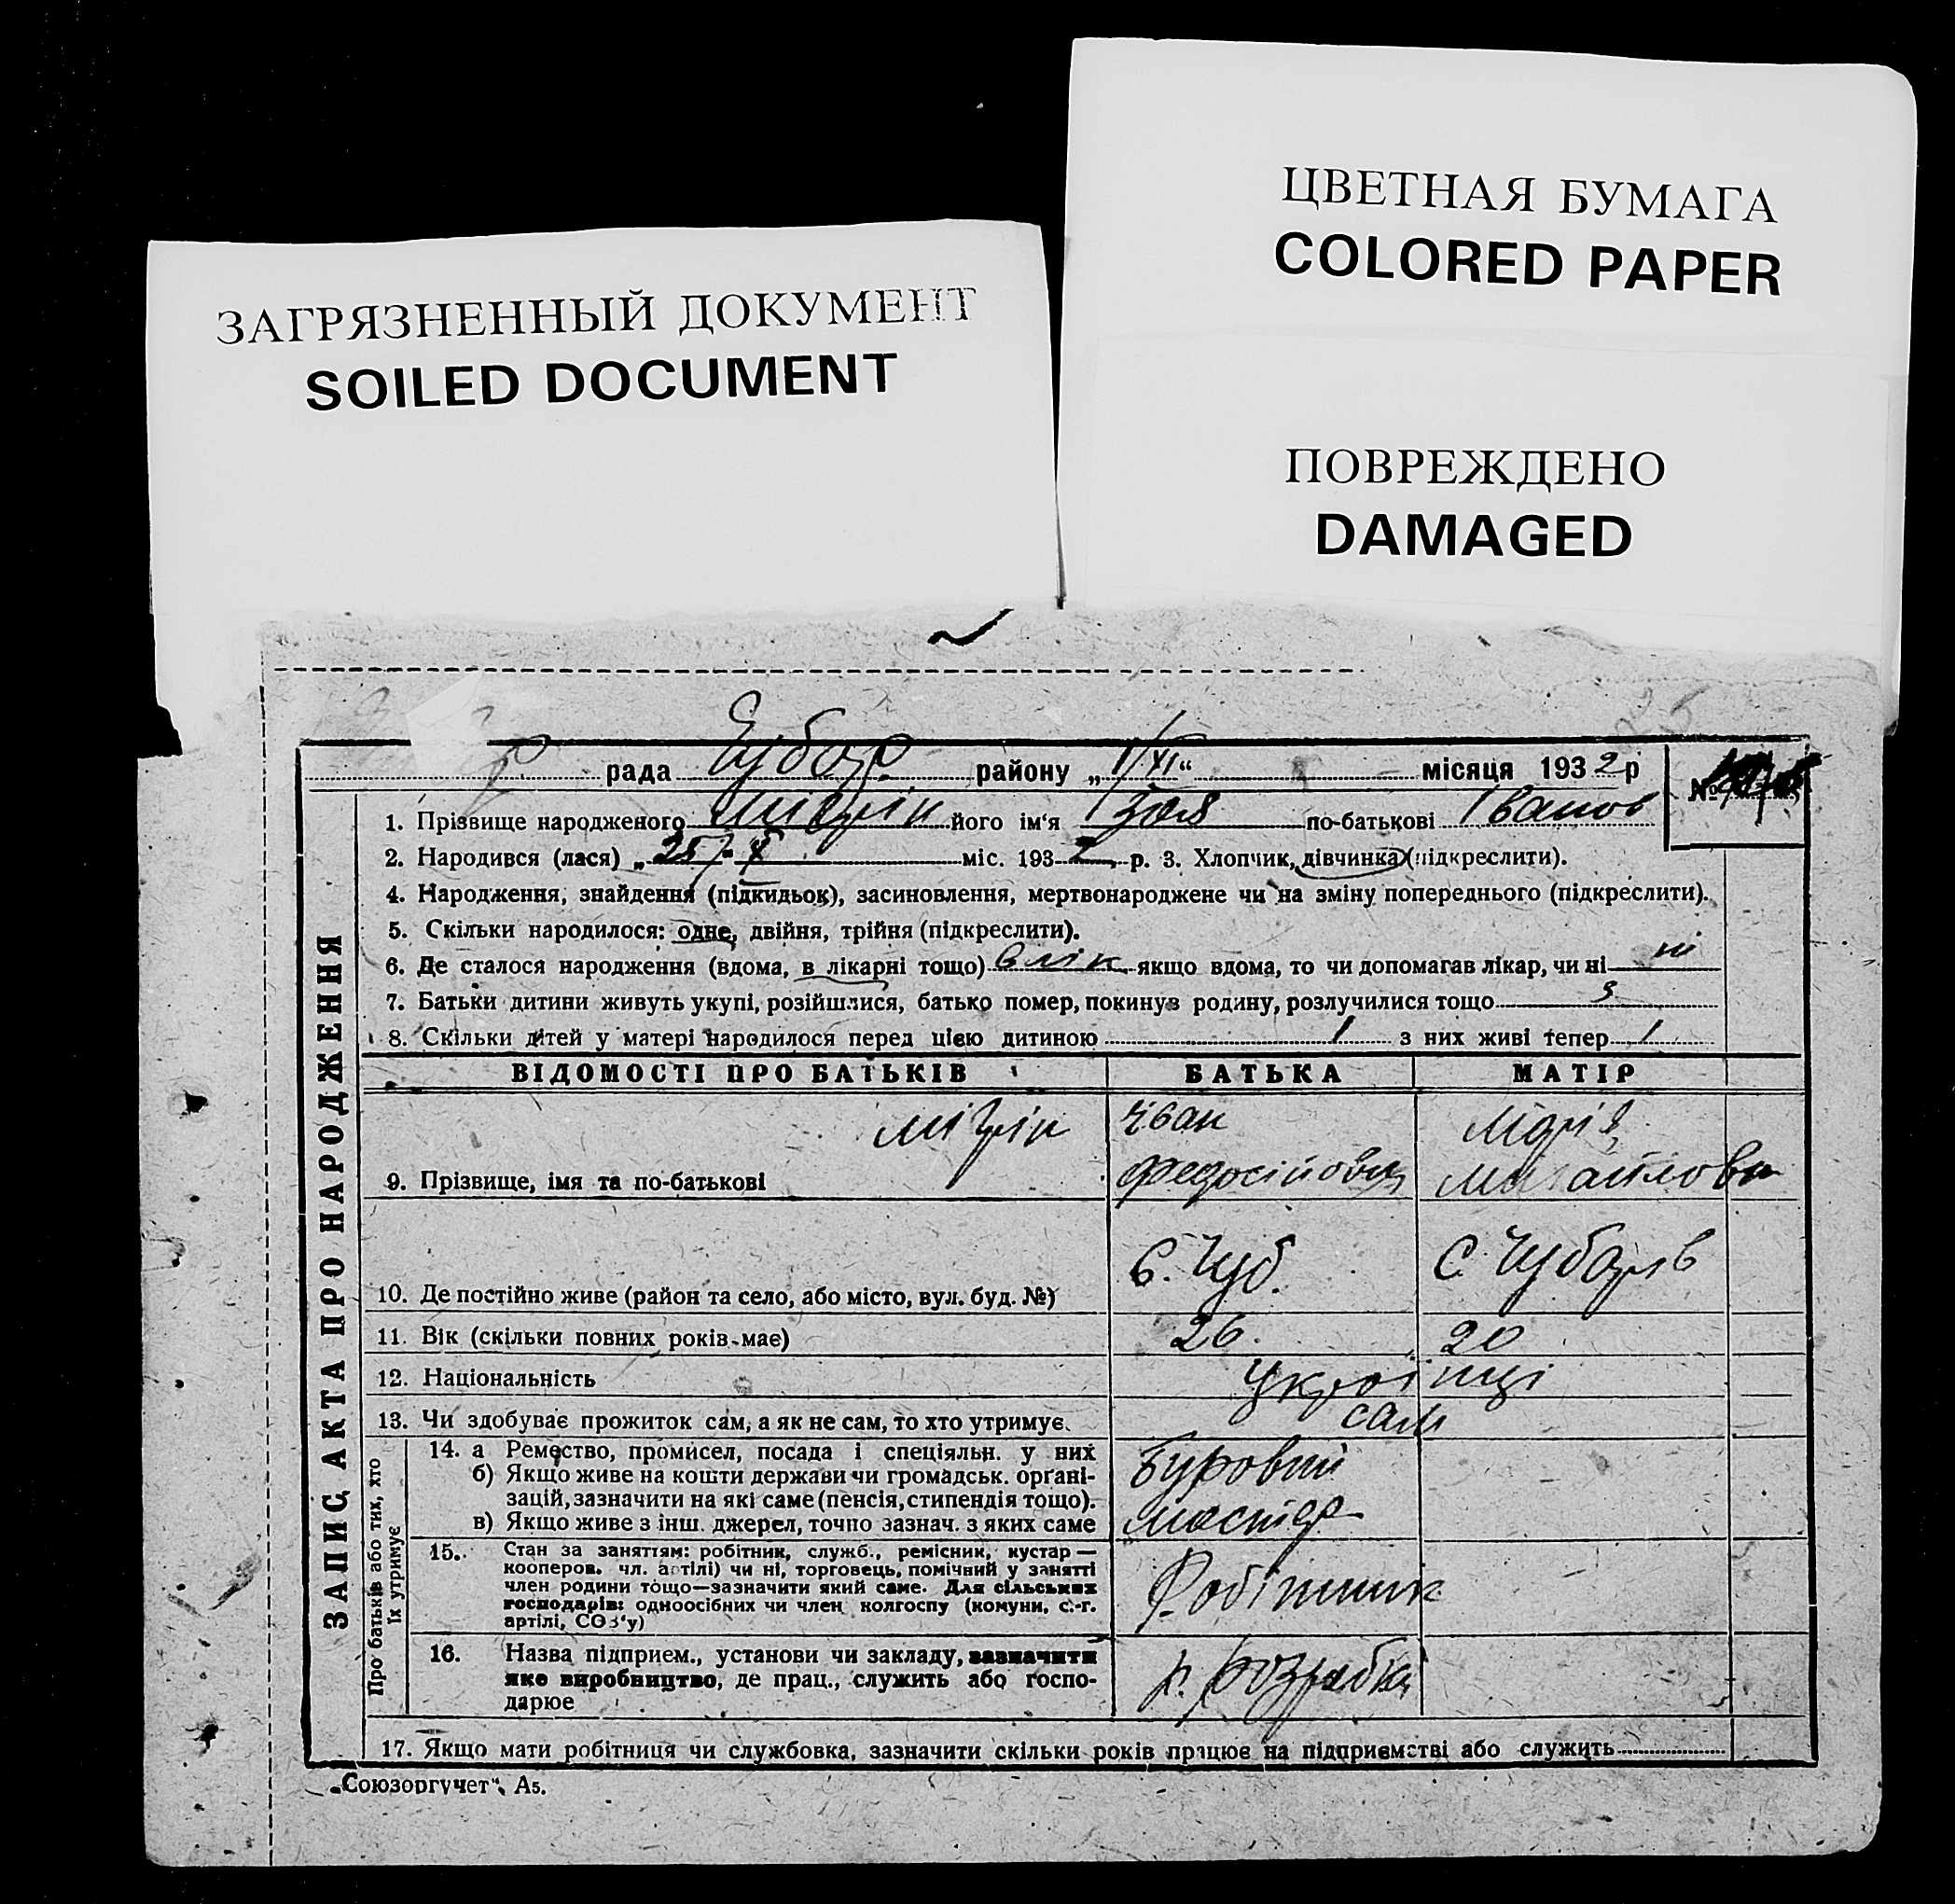 ЦВЕТНАЯ БУМАГА
COLORED PAPER
ЗАГРЯЗНЕННЫЙ ДОКУМЕНТ
SOILED DOCUMENT
ПОВРЕЖДЕНО
DAMAGED
рада Чубар. району „1/XI“ місяця 1932 р
№
1. Прізвище народженого його ім‘я Зоя по-батькові Іванов
2. Народився (лася) „25/X міс. 1932 р. 3. Хлопчик, дівчинка (підкреслити).
4. Народження, знайдення (підкидьок), засиновлення, мертвонароджене чи на зміну попереднього (підкреслити).
5. Скільки народилося: одне, двійня, трійня (підкреслити).
6. Де сталося народження (вдома, в лікарні тощо) в лік якщо вдома, то чи допомагав лікар, чи ні ні
7. Батьки дитини живуть укупі, розійшлися, батько помер, покинув родину, розлучилися тощо
8. Скільки дітей у матері народилося перед цією дитиною 1 з них живі тепер 1
ЗАПИС АКТА ПРО НАРОДЖЕННЯ
ВІДОМОСТІ ПРО БАТЬКІВ БАТЬКА МАТІР
Іван Марія
9. Прізвище, імя та по-батькові Федосійович Михайловн
10. Де постійно живе (район та село, або місто, вул. буд. №) С. Чуб. С. Чубарів
11. Вік (скільки повних років має) 26. 20
12. Національність Українці
13. Чи здобуває прожиток сам, а як не сам, то хто утримує. сам
Про батьків або тих, хто
їх утримує
14. а Ремество, промисел, посада і спеціяльн. у них Буровий
б) Якщо живе на кошти держави чи громадськ. орґані-
зацій, зазначити на які саме (пенсія, стипендія тощо).
в) Якщо живе з інш. джерел, точно зазнач. з яких саме мастер
15. Стан за заняттям: робітник, служб., ремісник, кустар —
кооперов. чл. артілі) чи ні, торговець, помічний у занятті
член родини тощо—зазначити який саме. Для сільських Робітник
господарів: одноосібних чи член колгоспу (комуни, с.-г.
артілі, СОЗ‘у)
16. Назва підприєм., установи чи закладу, зазначити
яке виробництво, де прац., служить або госпо- р. розрабки
дарює
17. Якщо мати робітниця чи службовка, зазначити скільки років працює на підприємстві або служить
„Союзоргучет“, А5.